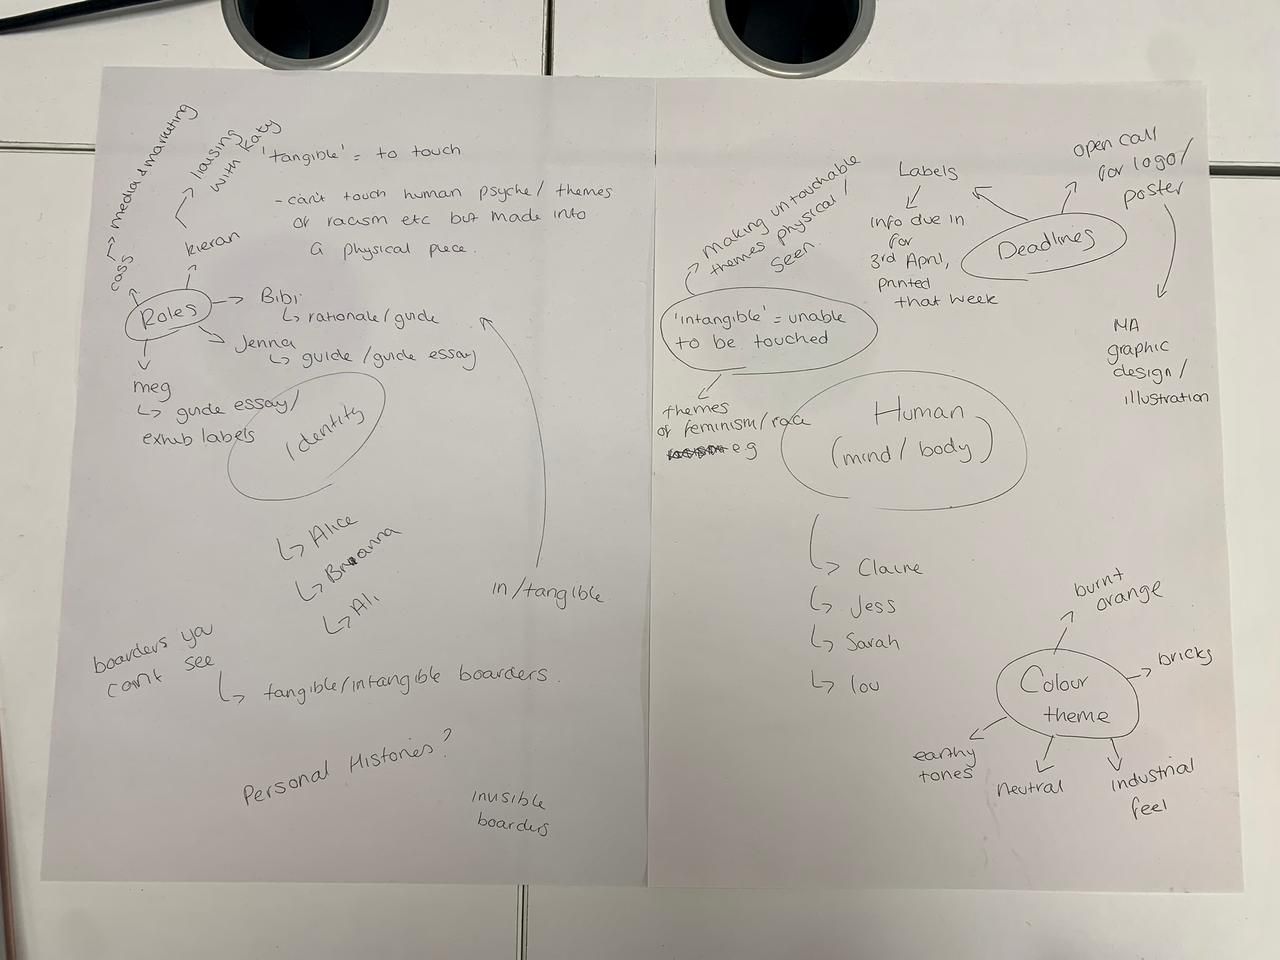 media & marketing
cass
liasing
with Katy
kieran
Roles
Bibi
rationale/guide
Jenna
guide/guide essay
meg
guide essay/
exhib labels
'tangible' = to touch
- can't touch human psyche/themes
of racism etc but made into
a physical piece.
Identity
Alice
Brianna
Ali
in/tangible
boarders you
can't see
tangible/intangible boarders.
Personal Histories?
invisible
boarders
making untouchable
themes physical/
seen
'intangible' = unable
to be touched
themes
of feminism/race
e.g
Labels
info due in
for
3rd April,
printed
that week
Deadlines
open call
for logo/
poster
MA
graphic
design/
illustration
Human
(mind/body)
Claire
Jess
Sarah
lou
burnt
orange
Colour
theme
bricks
earthy
tones
neutral
industrial
feel